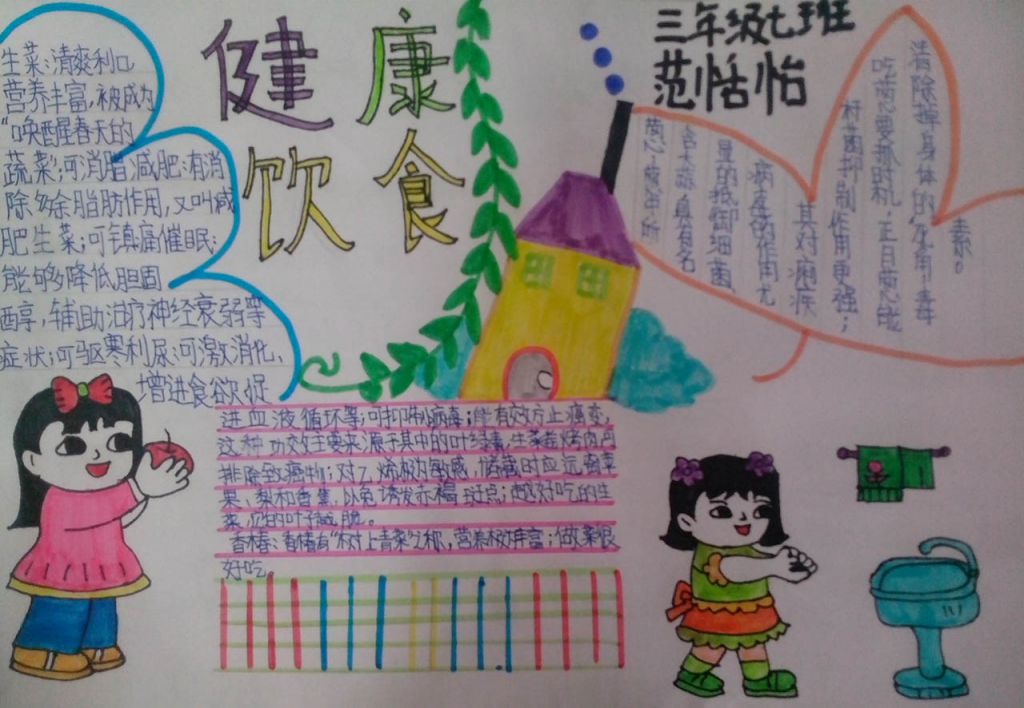 健康
饮食
三年级七班
范恬怡
生菜:清爽利口
营养丰富,被成为
“唤醒春天的
蔬菜;可消脂减肥:有消
除多余脂肪作用,又叫减
肥生菜;可镇痛催眠:
能够降低胆固
醇,辅助治疗神经衰弱等
症状;可驱寒利尿:可激消化、
增进食欲促
进血液循环等;可抑制病毒;能有效方止癌变,
这种功效主要来源于其中的叶绿素,生菜能
排除致癌物;对乙烯极为敏感,储藏时应远离苹
果、梨和香蕉,以免诱发赤褐斑点;越好吃的生
菜,它的叶子越脆。
香椿:香椿有“树上青菜”之称,营养极丰富;做菜很
好吃。
含大蒜,真有名
显的抵御细菌
病毒的作用尤
其对痢疾
杆菌抑制作用更强;
吃葱要抓时机:正月葱能
清除掉身体的
素。